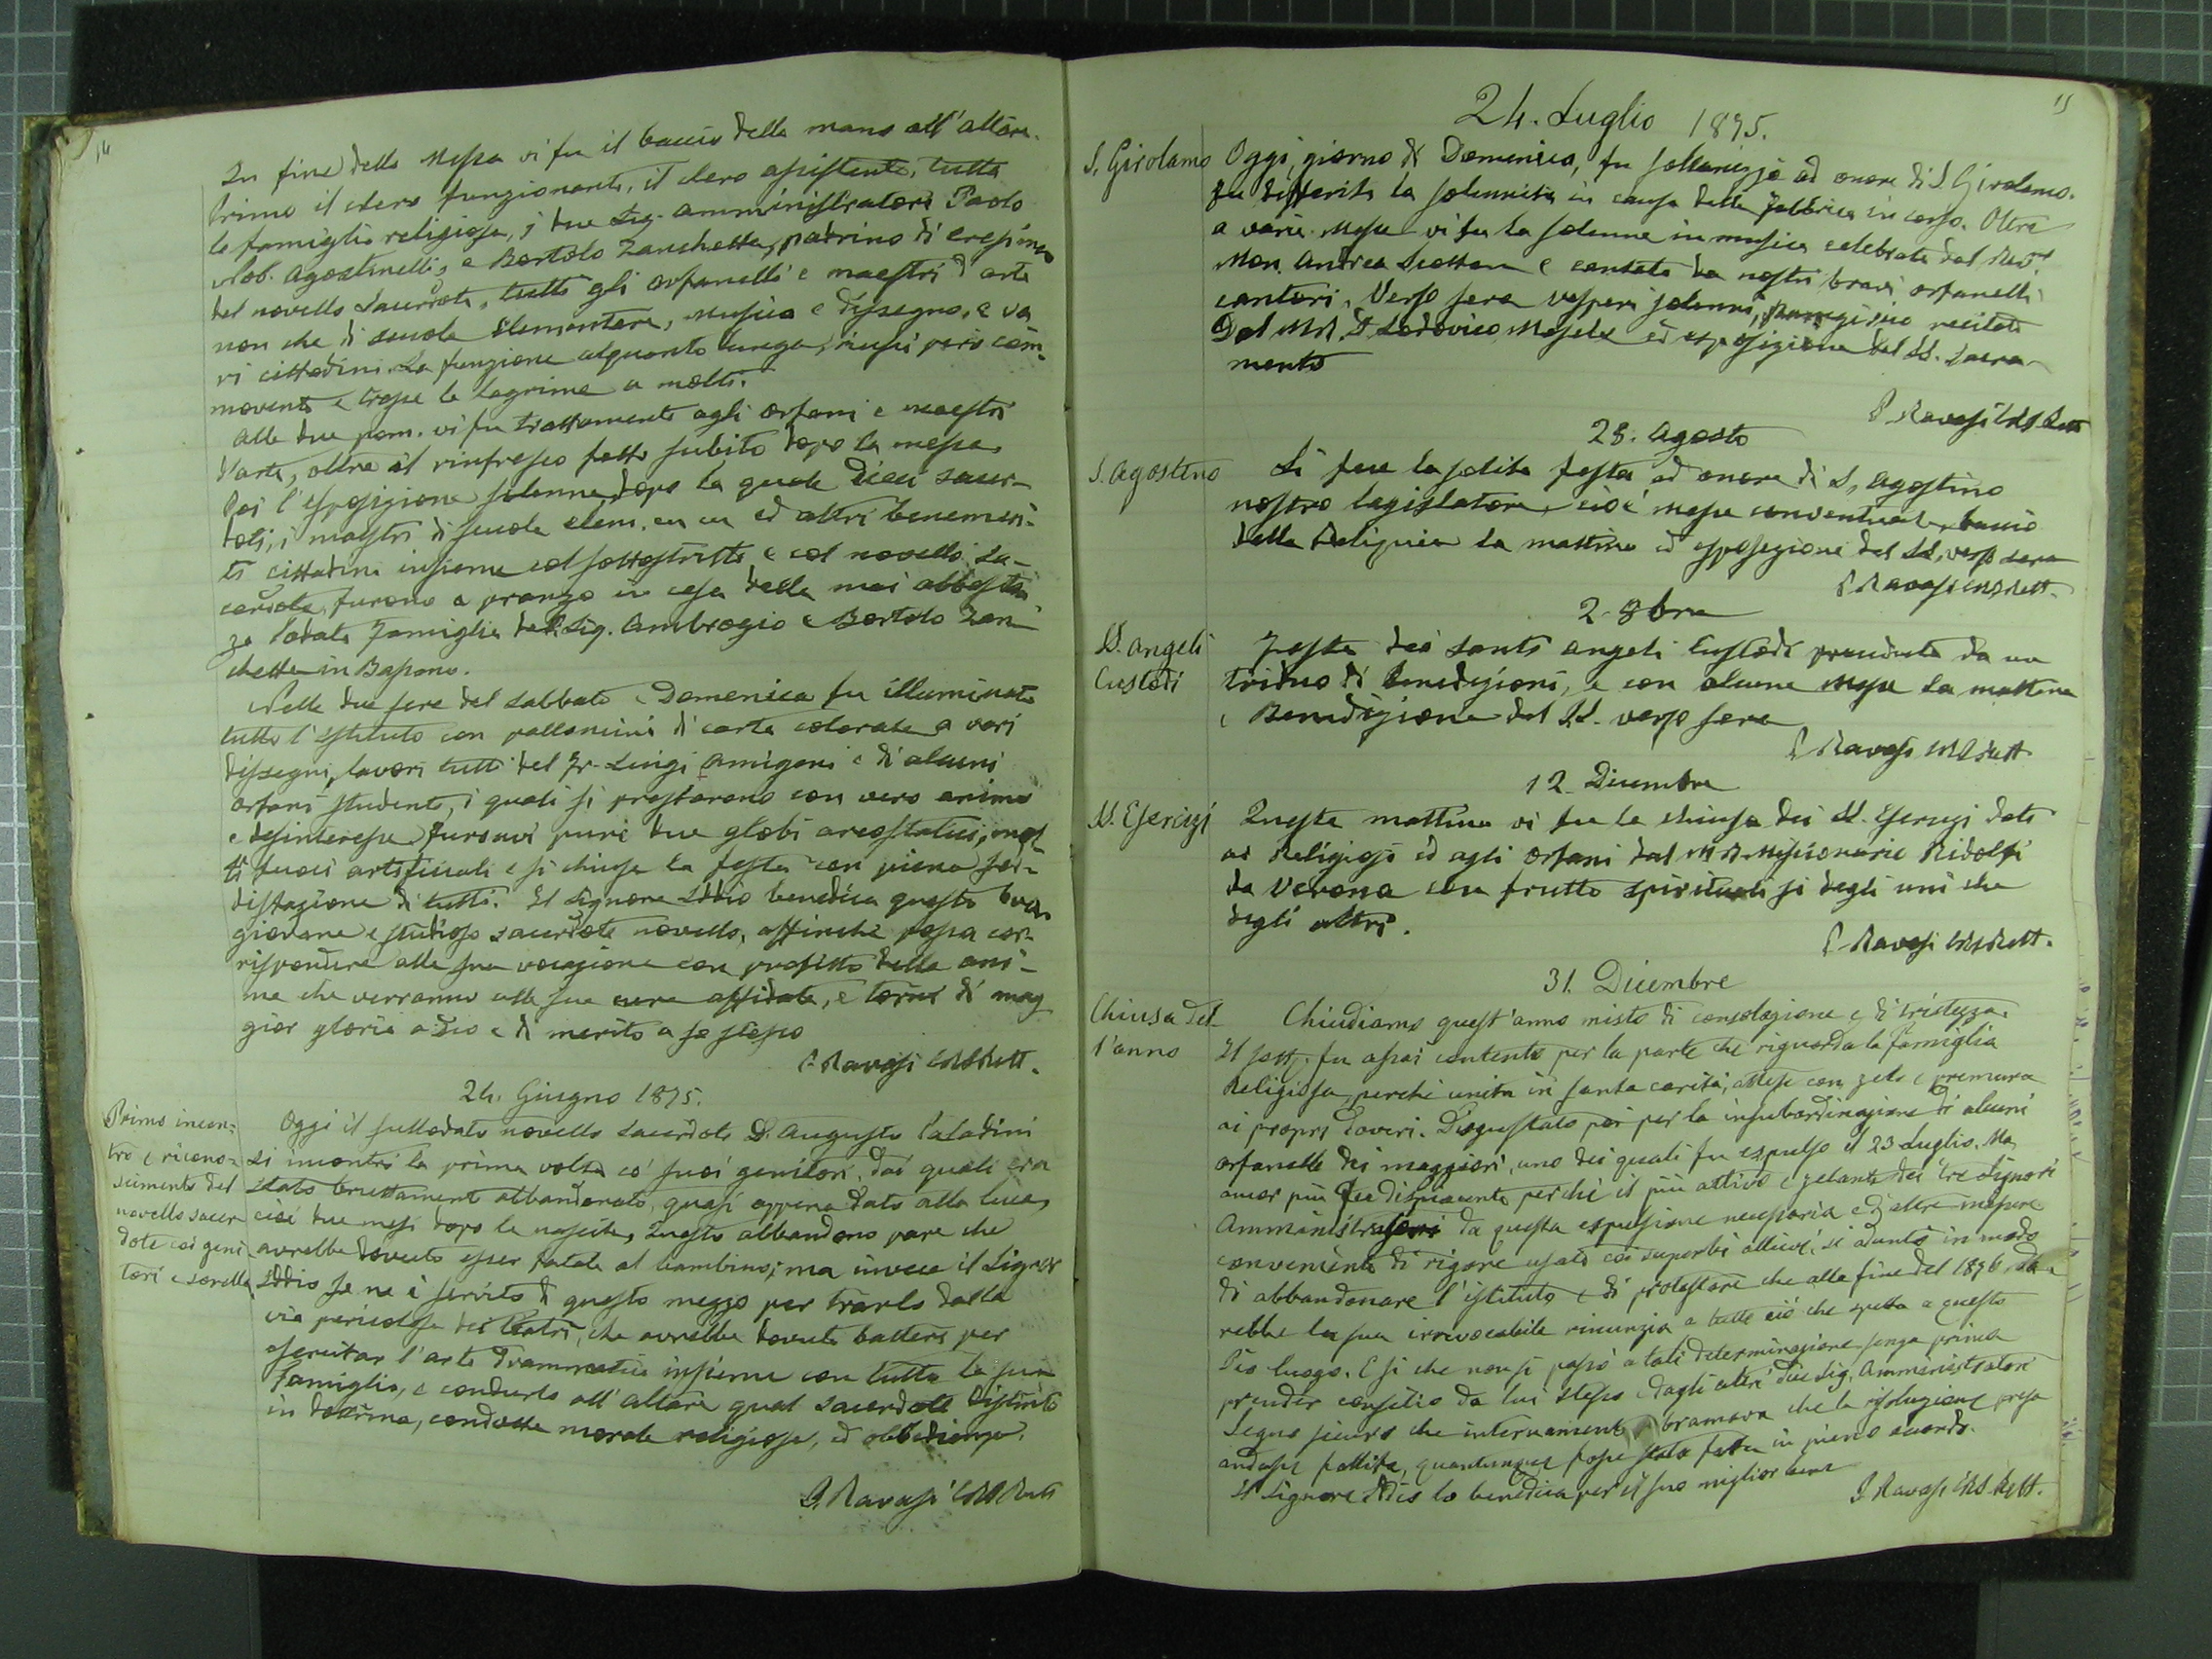 14
In fine della Messa vi fu il baccio della mano all'altare.
Primo il clero funzionante, il clero assistente, tutta
la famiglia religiosa, i due Sig. amministratori Paolo
Nob. Agostinelli, e Bortolo Zanchetta, padrino di cresima
del novello Sacerdote, tutti gli orfanelli e maestri d'arte
non che di scuola elementare, musica e dissegno, e va
ri cittadini. La funzione alquanto lunga, riuscì però com-
movente e trasse le lagrime a molti.
Alle due pom. vi fu trattamento agli orfani e maestri
d'arte, oltre il rinfresco fatto subito dopo la messa
Poi l'esposizione solenne, dopo la quale dieci sacer-
doti, i maestri di scuola elem. ed altri benemeri-
ti cittadini insieme col sottoscritto e col novello Sa-
cerdote furono a pranzo in casa della mai abbastan
za lodata famiglia del Sig. Ambrogio e Bortolo Zan-
chetta in Bassano.
Nelle due sere del Sabbato e Domenica fu illuminato
tutto l'istituto con palloncini di carta colorata a vari
dissegni, lavori tutti del Fr. Luigi Amigoni e di alcuni
orfani studenti, i quali si prestarono con vero animo
e desinteresse furonvi pure due globi areostatici, mol
ti fuochi artificiali e si chiuse la festa con piena sod-
disfazione di tutti. Il Signore Iddio benedica questo buon
giovane e studioso sacerdote novello, affinchè possa cor-
rispondere alla sua vocazione con profitto delle ani-
me che verranno alle sue cure affidate, e torni di mag
gior gloria a Dio e di merito a se stesso
P. Ravasi CRS Rett.
24. Giugno 1895.
Primo incon-
tro e ricono-
scimento del
novello sacer
dote coi geni
tori e sorella
Oggi il sullodato novello sacerdote D. Augusto Paladini
si incontrò la prima volta co' suoi genitori, dai quali era
stato bruttamente abbandonato, quasi appena dato alla luce,
cioè due mesi dopo la nascita, Questo abbandono pare che
avrebbe dovuto esser fatale al bambino; ma invece il Signor
Iddio se ne è servito di questo mezzo per trarlo dalla
via pericolosa dei Teatri, che avrebbe dovuto battere per
esercitar l'arte drammatica insieme con tutta la sua
famiglia, e condurlo all'altare qual sacerdote distinto
in dottrina, condotta morale religiosa, ed obbedienza.
P. Ravasi CRS Rett
15
24. Luglio 1895.
S. Girolamo
Oggi, giorno di Domenica, fu solleniggiò ad onore di S. Girolamo.
fu differita la solennità in causa della fabbrica in corso. Oltre
a varie messe vi fu la solenne in musica celebrata dal Rev.
Mon. Andrea Scotton e cantata da nostri bravi orfanelli
cantori. Verso sera vesperi solenni, panegirico recitato
Dal M.R. D. Lodovico Mosele ed esposizione del SS. Sacra-
mento
P. Ravasi CRS Rett
28. Agosto
S. Agostino
Si fece la solita festa ad onore di S. Agostino
nostro legislatore, cioè messa conventuale, baccio
della Reliquia la mattina ed esposizione del SS. verso sera
P. Ravasi CRS Rett.
2. 8bre
SS. Angeli
Custodi
Festa dei Santi Angeli Custodi preceduta da un
triduo di benedizioni, e con alcune messe la mattina
e Benedizione del SS. verso sera
P. Ravasi CRS Rett
12. Dicembre
SS. Esercizi
Questa mattina vi fu la chiusa dei SS. Esercizi dati
ai Religiosi ed agli orfani dal M.R. Missionario Ridolfi
da Verona con frutto spirituale sì degli uni che
degli altri.
P. Ravasi CRS Rett.
31. Dicembre
Chiusa del-
l'anno
Chiudiamo quest'anno misto di consolazione e di tristezza.
Il sott. fu assai contento per la parte che riguarda la famiglia
Religiosa, perchè unita in santa carità, attese con zelo e premura
ai propri doveri. Disgustato poi per la insubordinazione di alcuni
orfanelli dei maggiori, uno dei quali fu espulso il 23 Luglio. Ma
ancor più fu dispiacente perchè il più attivo e zelante dei tre Signori
Amministratori da questa espulsione necessaria e d'altre misure
convenienti di rigore usato coi superbi allievi, si adontò in modo
di abbandonare l'istituto e di protestare che alla fine del 1896, da-
rebbe la sua irrevocabile rinunzia a tutto ciò che spetta a questo
Pio luogo. E sì che non si passò a tali determinazione senza prima
prender consilio da lui stesso e dagli altri due Sig. Amministratori
Segno sicuro che internamente bramava che la risoluzione presa
andasse fallita, quantunque fosse stata fatta in pieno accordo.
Il Signore Iddio lo benedica per il suo miglior bene
P. Ravasi CRS Rett.